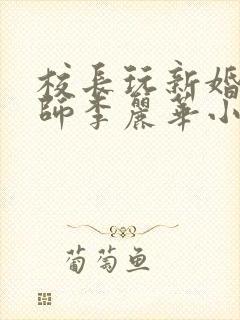 校長玩新婚
師李麗華小
葡萄鱼